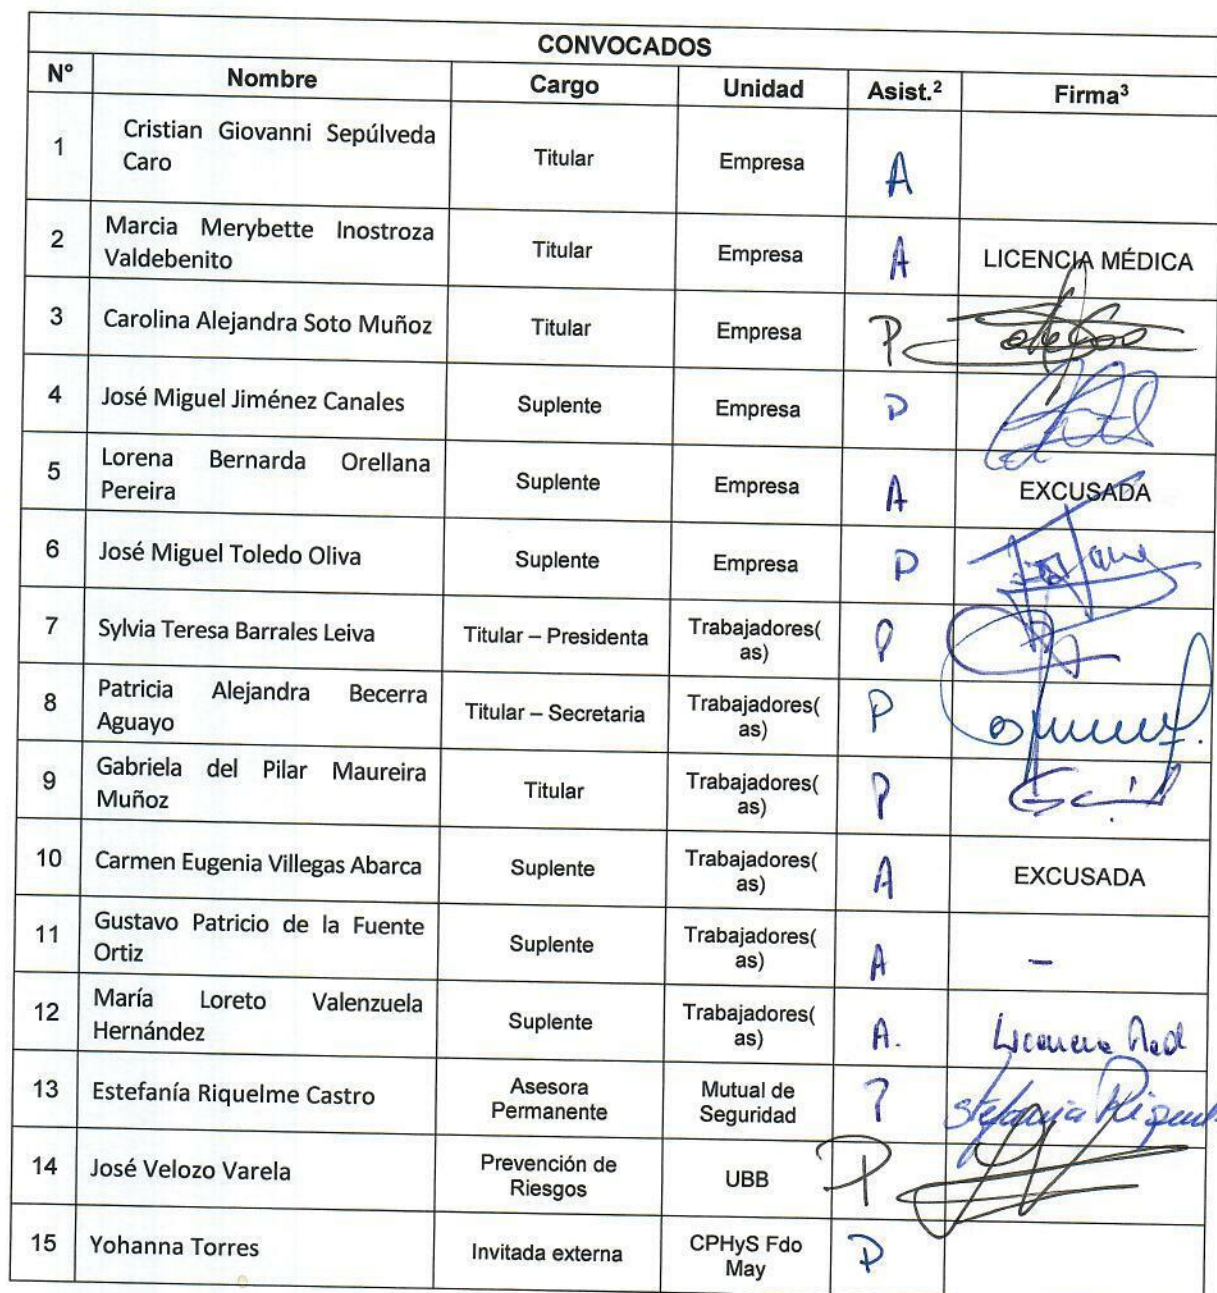 CONVOCADOS
N° Nombre Cargo Unidad Asist.² Firma³
1 Cristian Giovanni Sepúlveda Caro Titular Empresa A
2 Marcia Merybette Inostroza Valdebenito Titular Empresa A LICENCIA MÉDICA
3 Carolina Alejandra Soto Muñoz Titular Empresa P
4 José Miguel Jiménez Canales Suplente Empresa P
5 Lorena Bernarda Orellana Pereira Suplente Empresa A EXCUSADA
6 José Miguel Toledo Oliva Suplente Empresa P
7 Sylvia Teresa Barrales Leiva Titular – Presidenta Trabajadores(as) P
8 Patricia Alejandra Becerra Aguayo Titular – Secretaria Trabajadores(as) P
9 Gabriela del Pilar Maureira Muñoz Titular Trabajadores(as) P
10 Carmen Eugenia Villegas Abarca Suplente Trabajadores(as) A EXCUSADA
11 Gustavo Patricio de la Fuente Ortiz Suplente Trabajadores(as) A –
12 María Loreto Valenzuela Hernández Suplente Trabajadores(as) A. Licencia Med
13 Estefanía Riquelme Castro Asesora Permanente Mutual de Seguridad P
14 José Velozo Varela Prevención de Riesgos UBB P
15 Yohanna Torres Invitada externa CPHyS Fdo May P